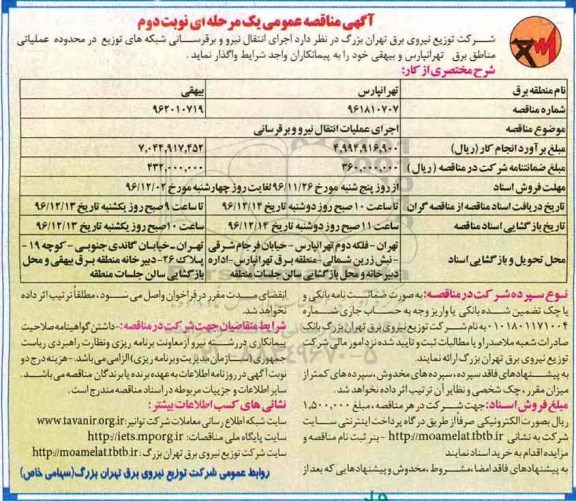 آگهی مناقصه عمومی یک مرحله ای نوبت دوم
شرکت توزیع نیروی برق تهران بزرگ در نظر دارد اجرای انتقال نیرو و برقرسانی شبکه های توزیع در محدوده عملیاتی
مناطق برق تهرانپارس و بیهقی خود را به پیمانکاران واجد شرایط واگذار نماید.
شرح مختصری از کار:
نام منطقه برق تهرانپارس بیهقی
شماره مناقصه ۹۶۱۸۱۰۷۰۷ ۹۶۲۰۱۰۷۱۹
موضوع مناقصه اجرای عملیات انتقال نیرو و برقرسانی
مبلغ برآورد انجام کار (ریال) ۴,۹۹۴,۹۱۶,۹۰۰ ۷,۰۴۴,۹۱۷,۴۵۲
مبلغ ضمانتنامه شرکت در مناقصه (ریال) ۳۶۰,۰۰۰,۰۰۰ ۴۳۲,۰۰۰,۰۰۰
مهلت فروش اسناد از روز پنج شنبه مورخ ۹۶/۱۱/۲۶ لغایت روز چهارشنبه مورخ ۹۶/۱۲/۰۲
تاریخ دریافت اسناد مناقصه از مناقصه گران تا ساعت ۱۰ صبح روز دوشنبه تاریخ ۹۶/۱۲/۱۴ تا ساعت ۹ صبح روز یکشنبه تاریخ ۹۶/۱۲/۱۳
تاریخ بازگشایی اسناد مناقصه ساعت ۱۱ صبح روز دوشنبه تاریخ ۹۶/۱۲/۱۴ ساعت ۱۰ صبح روز یکشنبه تاریخ ۹۶/۱۲/۱۳
محل تحویل و بازگشایی اسناد تهران - فلکه دوم تهرانپارس - خیابان فرجام شرقی تهران - خیابان گاندی جنوبی - کوچه ۱۹ -
- نبش زرین شمالی - منطقه برق تهرانپارس - اداره پلاک ۲۶ - دبیرخانه منطقه برق بیهقی و محل
دبیرخانه و محل بازگشایی سالن جلسات منطقه بازگشایی سالن جلسات منطقه
نوع سپرده شرکت در مناقصه: به صورت ضمانت نامه بانکی و
یا چک تضمین شده بانکی یا واریز وجه به حساب جاری شماره
۰۱۰۱۸۰۱۱۷۱۰۰۴ به نام شرکت توزیع نیروی برق تهران بزرگ بانک
صادرات شعبه ملاصدرا و یا مطالبات ثبت و تایید شده نزد امور مالی شرکت
توزیع نیروی برق تهران بزرگ ارائه نمایند.
به پیشنهادهای فاقد سپرده، سپرده های مخدوش، سپرده های کمتر از
میزان مقرر، چک شخصی و نظایر آن ترتیب اثر داده نخواهد شد.
مبلغ فروش اسناد: جهت شرکت در هر مناقصه، مبلغ ۱,۵۰۰,۰۰۰
ریال بصورت الکترونیکی صرفاً از طریق درگاه پرداخت اینترنتی سایت
شرکت به نشانی http://moamelat.tbtb.ir - بنر ثبت نام مناقصه و
مزایده اقدام به خرید اسناد نمایند
به پیشنهادهای فاقد امضا، مشروط، مخدوش و پیشنهادهایی که بعد از
انقضای مدت مقرر در فراخوان واصل می شود، مطلقاً ترتیب اثر داده
نخواهد شد.
شرایط متقاضیان جهت شرکت در مناقصه: - داشتن گواهینامه صلاحیت
پیمانکاری در رشته نیرو از معاونت برنامه ریزی و نظارت راهبردی ریاست
جمهوری (سازمان مدیریت و برنامه ریزی) الزامی می باشد. - هزینه درج دو
نوبت آگهی در روزنامه اطلاعات به عهده برنده یا برندگان مناقصه می باشد.
سایر اطلاعات و جزییات مربوطه در اسناد مناقصه مندرج است.
نشانی های کسب اطلاعات بیشتر:
سایت شبکه اطلاع رسانی معاملات شرکت توانیر: www.tavanir.org.ir
سایت پایگاه ملی مناقصات: http://iets.mporg.ir
سایت شرکت توزیع نیروی برق تهران بزرگ: http://moamelat.tbtb.ir
روابط عمومی شرکت توزیع نیروی برق تهران بزرگ (سهامی خاص)